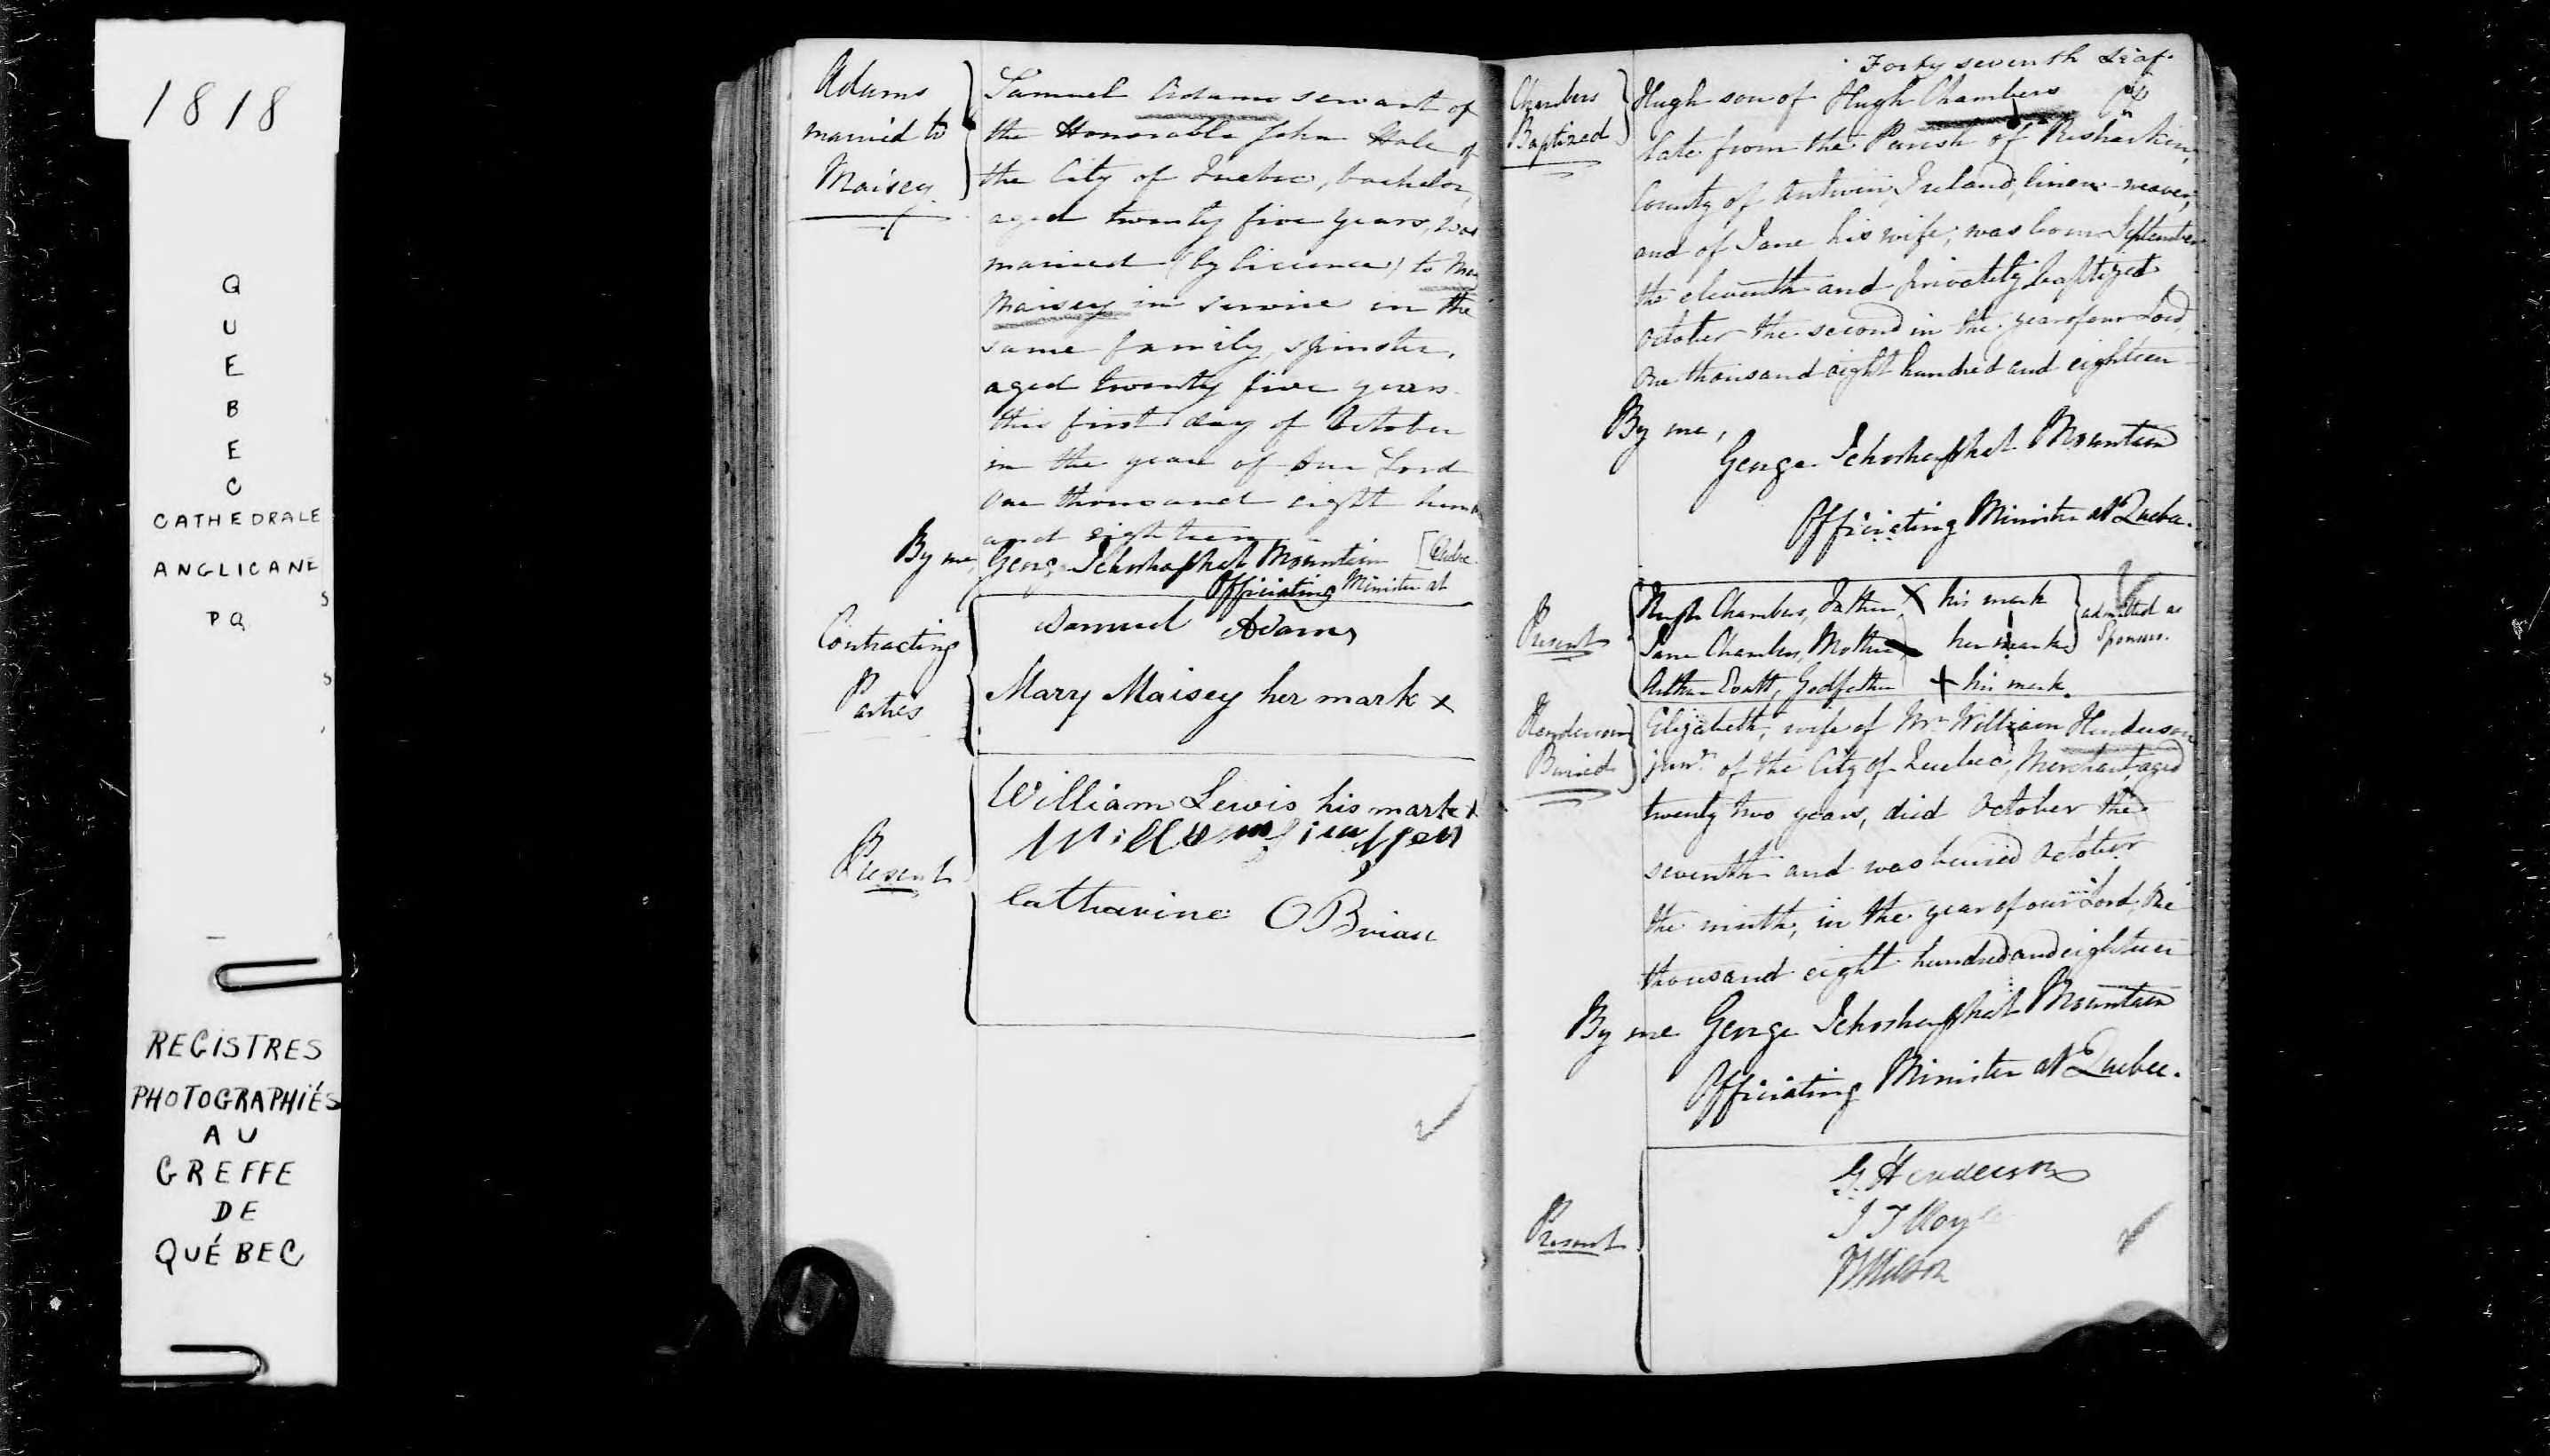 1818
QUEBEC
CATHEDRALE
ANGLICANE
PQ
REGISTRES
PHOTOGRAPHIÉS
AU
GREFFE
DE
QUÉBEC
Adams
married to
Maisey
Samuel Adams servant of
the Honorable John Hale of
the City of Quebec, bachelor,
aged twenty five years, was
married (by licence) to
Maisey in service in the
same family, spinster,
aged twenty five years
this first day of October
in the year of our Lord
One thousand eight
and eighteen
By me, George Jehoshaphat Mountain [Quebec
Officiating Minister at
Contracting
Parties
Samuel Adams
Mary Maisey her mark x
Present
William Lewis his mark x
Catharine OBrian
Forty seventh Leaf
Chambers
Baptized
Hugh son of Hugh Chambers
late from the Parish of
County of Antrim, Ireland, linen-weaver,
and of Jane his wife, was born September
the eleventh and privately baptized
October the second in the year of our Lord
One thousand eight hundred and eighteen
By me,
George Jehoshaphat Mountain
Officiating Minister at Quebec.
Present
Hugh Chambers, Father, X his mark
Jane Chambers, Mother, her mark
admitted as
Sponsors.
Arthur Godfather + his mark
Henderson
Buried
Elizabeth, wife of Mr. William Henderson
junr. of the City of Quebec, Merchant, aged
twenty two years, died October the
seventh and was buried October
the ninth, in the year of our Lord One
thousand eight hundred and eighteen
By me George Jehoshaphat Mountain
Officiating Minister at Quebec.
Present
G. Henderson